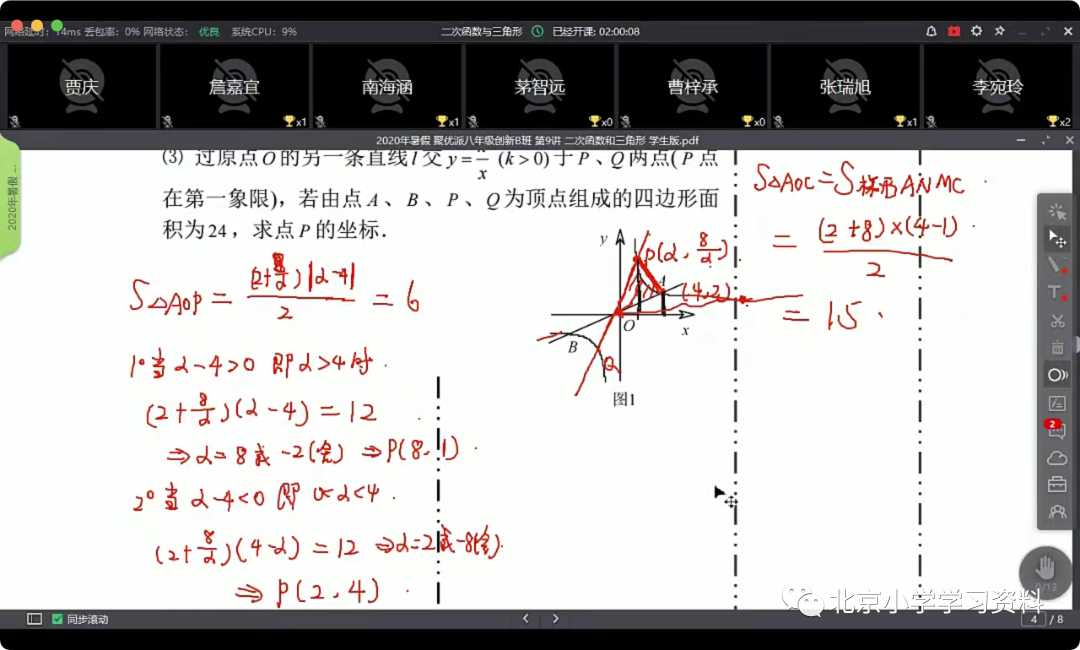 网络延时: 14ms 丢包率: 0% 网络状态: 优良 系统CPU: 9%
二次函数与三角形 已经开课: 02:00:08
贾庆
詹嘉宜 x1
南海涵 x1
茅智远 x0
曹梓承 x0
张瑞旭 x1
李宛玲 x2
2020年暑假 聚优派八年级创新B班 第9讲 二次函数和三角形 学生版.pdf
2020年暑假 ...
(3) 过原点O的另一条直线l交 y=k/x (k>0)于P、Q两点(P点
在第一象限)，若由点A、B、P、Q为顶点组成的四边形面
积为24，求点P的坐标.
S△AOP = (2+8/α)|α-4| / 2 = 6
1° 当 α-4>0 即 α>4 时.
(2+8/α)(α-4) = 12
⇒ α=8或-2(舍) ⇒ P(8,1)
2° 当 α-4<0 即 0<α<4.
(2+8/α)(4-α) = 12 ⇒ α=2或-8(舍).
⇒ P(2,4)
y
P(α, 8/α)
A
(4,2)
O
x
B
Q
图1
S△AOC = S梯形ANMC
= (2+8)×(4-1) / 2
= 15.
2
0/13
北京小学学习资料
同步滚动
4 / 8